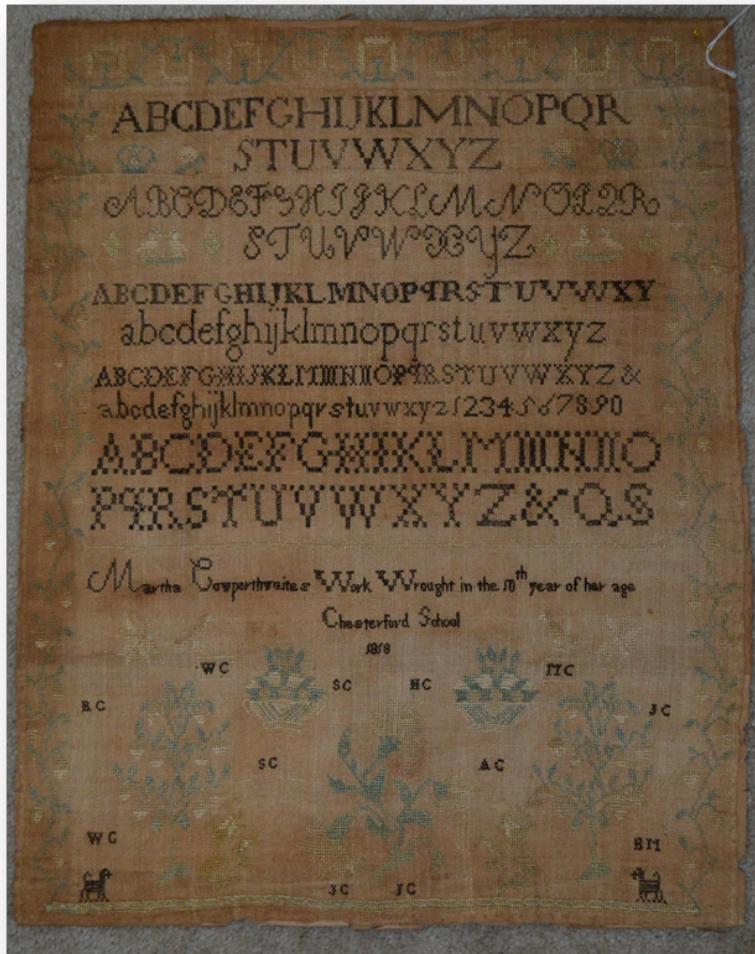 ABCDEFGHIJKLMNOPQR
STUVWXYZ
ABCDEFGHIJKLMNOPQR
STUVWXYZ
ABCDEFGHIJKLMNOPqRSTUVWXY
abcdefghijklmnopqrstuvwxyz
ABCDEFGHIJKLMNOPqRSTUVWXYZ&
abcdefghijklmnopqrstuvwxyz1234567890
ABCDEFGHIKLMNO
PqRSTUVWXYZ&QS
Martha Cowperthwaites Work Wrought in the 10th year of her age
Chesterford School
1818
WC SC HC MC
RC JC
SC AC
WC
JC JC